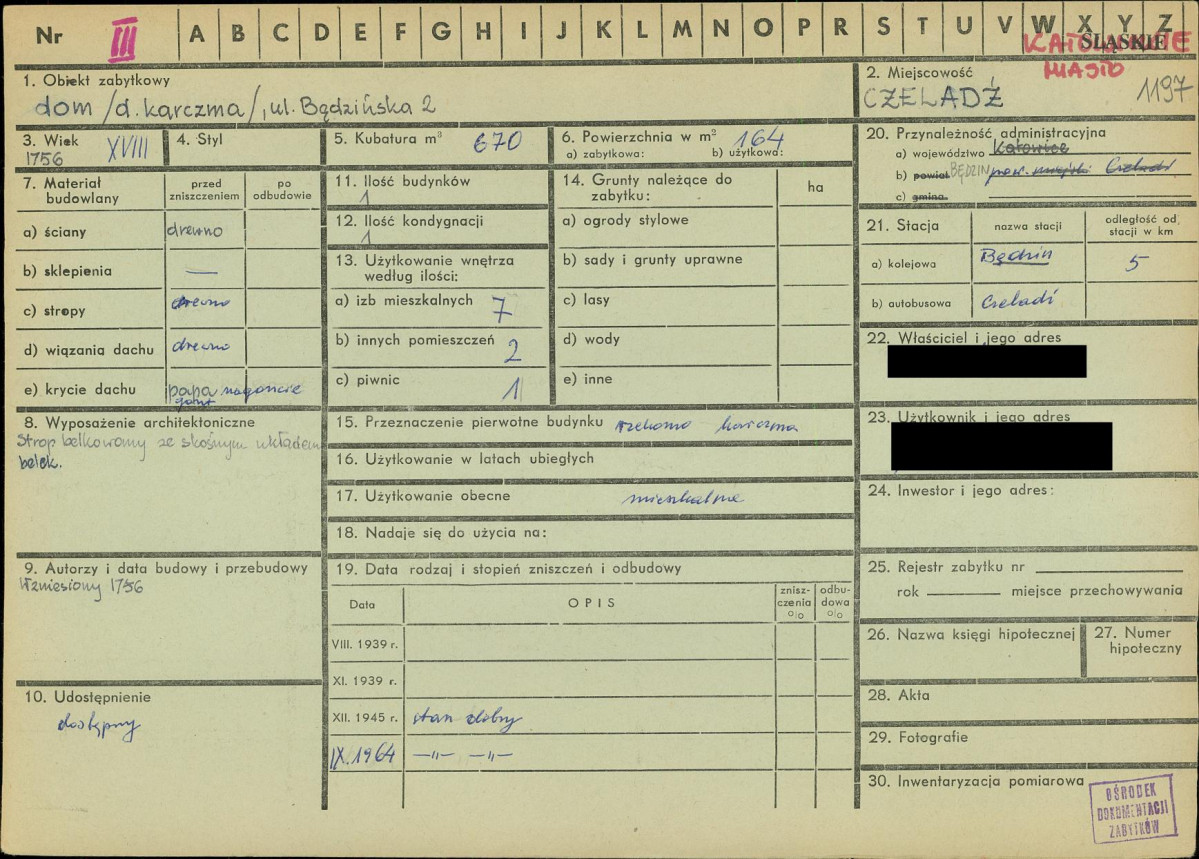 Nr III A B C D E F G H I J K L M N O P R S T U V W X Y Z
KATOWICE
ŚLĄSKIE
MIASTO
1. Obiekt zabytkowy
dom /d. karczma/, ul. Będzińska 2
2. Miejscowość
CZELADŹ 1197
3. Wiek
1756 XVIII
4. Styl
5. Kubatura m³ 670
6. Powierzchnia w m² 164
a) zabytkowa: b) użytkowa:
20. Przynależność administracyjna
a) województwo Katowice
b) powiat BĘDZIN pow. miejski Czeladź
c) gmina
7. Materiał budowlany
przed zniszczeniem
po odbudowie
a) ściany drewno
b) sklepienia —
c) stropy drewno
d) wiązania dachu drewno
e) krycie dachu papa na goncie
gont
8. Wyposażenie architektoniczne
Strop belkowany ze skośnym układem
belek.
9. Autorzy i data budowy i przebudowy
Wzniesiony 1756
10. Udostępnienie
dostępny
11. Ilość budynków
1
12. Ilość kondygnacji
1
13. Użytkowanie wnętrza
według ilości:
a) izb mieszkalnych 7
b) innych pomieszczeń 2
c) piwnic 1
14. Grunty należące do
zabytku:
ha
a) ogrody stylowe
b) sady i grunty uprawne
c) lasy
d) wody
e) inne
15. Przeznaczenie pierwotne budynku rzekomo karczma
16. Użytkowanie w latach ubiegłych
17. Użytkowanie obecne mieszkalne
18. Nadaje się do użycia na:
19. Data rodzaj i stopień zniszczeń i odbudowy
Data OPIS znisz-
czenia
%
odbu-
dowa
%
VIII. 1939 r.
XI. 1939 r.
XII. 1945 r. stan dobry
IX. 1964 —„— —„—
21. Stacja nazwa stacji odległość od
stacji w km
a) kolejowa Będzin 5
b) autobusowa Czeladź
22. Właściciel i jego adres
23. Użytkownik i jego adres
24. Inwestor i jego adres:
25. Rejestr zabytku nr
rok miejsce przechowywania
26. Nazwa księgi hipotecznej
27. Numer
hipoteczny
28. Akta
29. Fotografie
30. Inwentaryzacja pomiarowa
OŚRODEK
DOKUMENTACJI
ZABYTKÓW